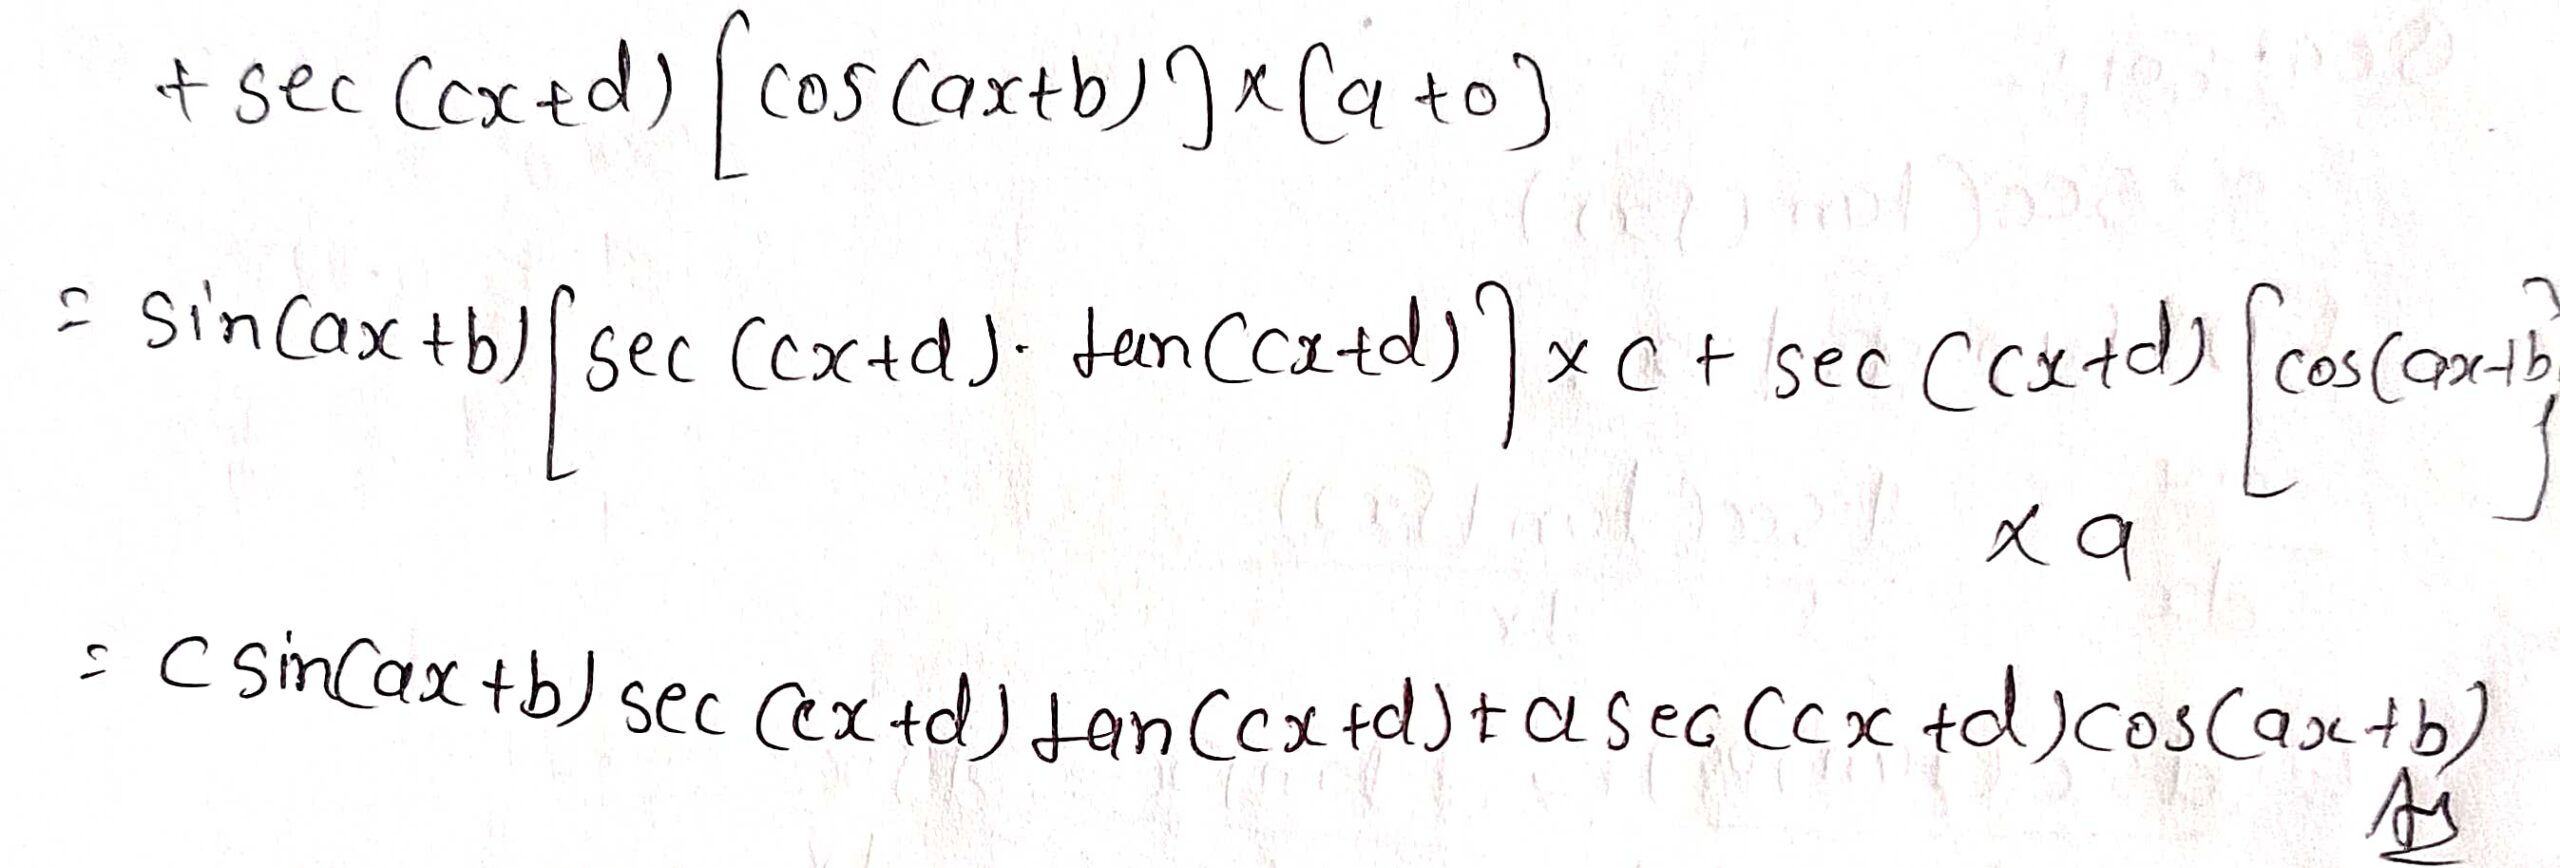 + sec (cx+d) [cos(ax+b)] x [a+0]
= sin(ax+b) [sec (cx+d). tan(cx+d)] x c + sec (cx+d) [cos(ax+b)]
x a
= c sin(ax+b) sec (cx+d) tan(cx+d) + a sec (cx+d) cos(ax+b)